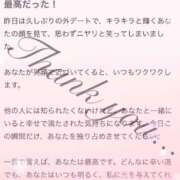 最高だった！
昨日は久しぶりの外デートで、キラキラと輝くあな
たの顔を見て、思わずニヤリと笑ってしまいまし
た。
あなたが笑顔で近づいてくると、いつもワクワクし
ます。
他の人には知られたくないけれど、あなたと一緒に
いると幸せで満たされた気持ちになります。今日こ
の瞬間だけ、あなたを独り占めさせてください。
一言で言えば、あなたは最高です。どんなに辛い道
でも、あなたはいつも明るく、私に光を与えてくれ
Thank you...